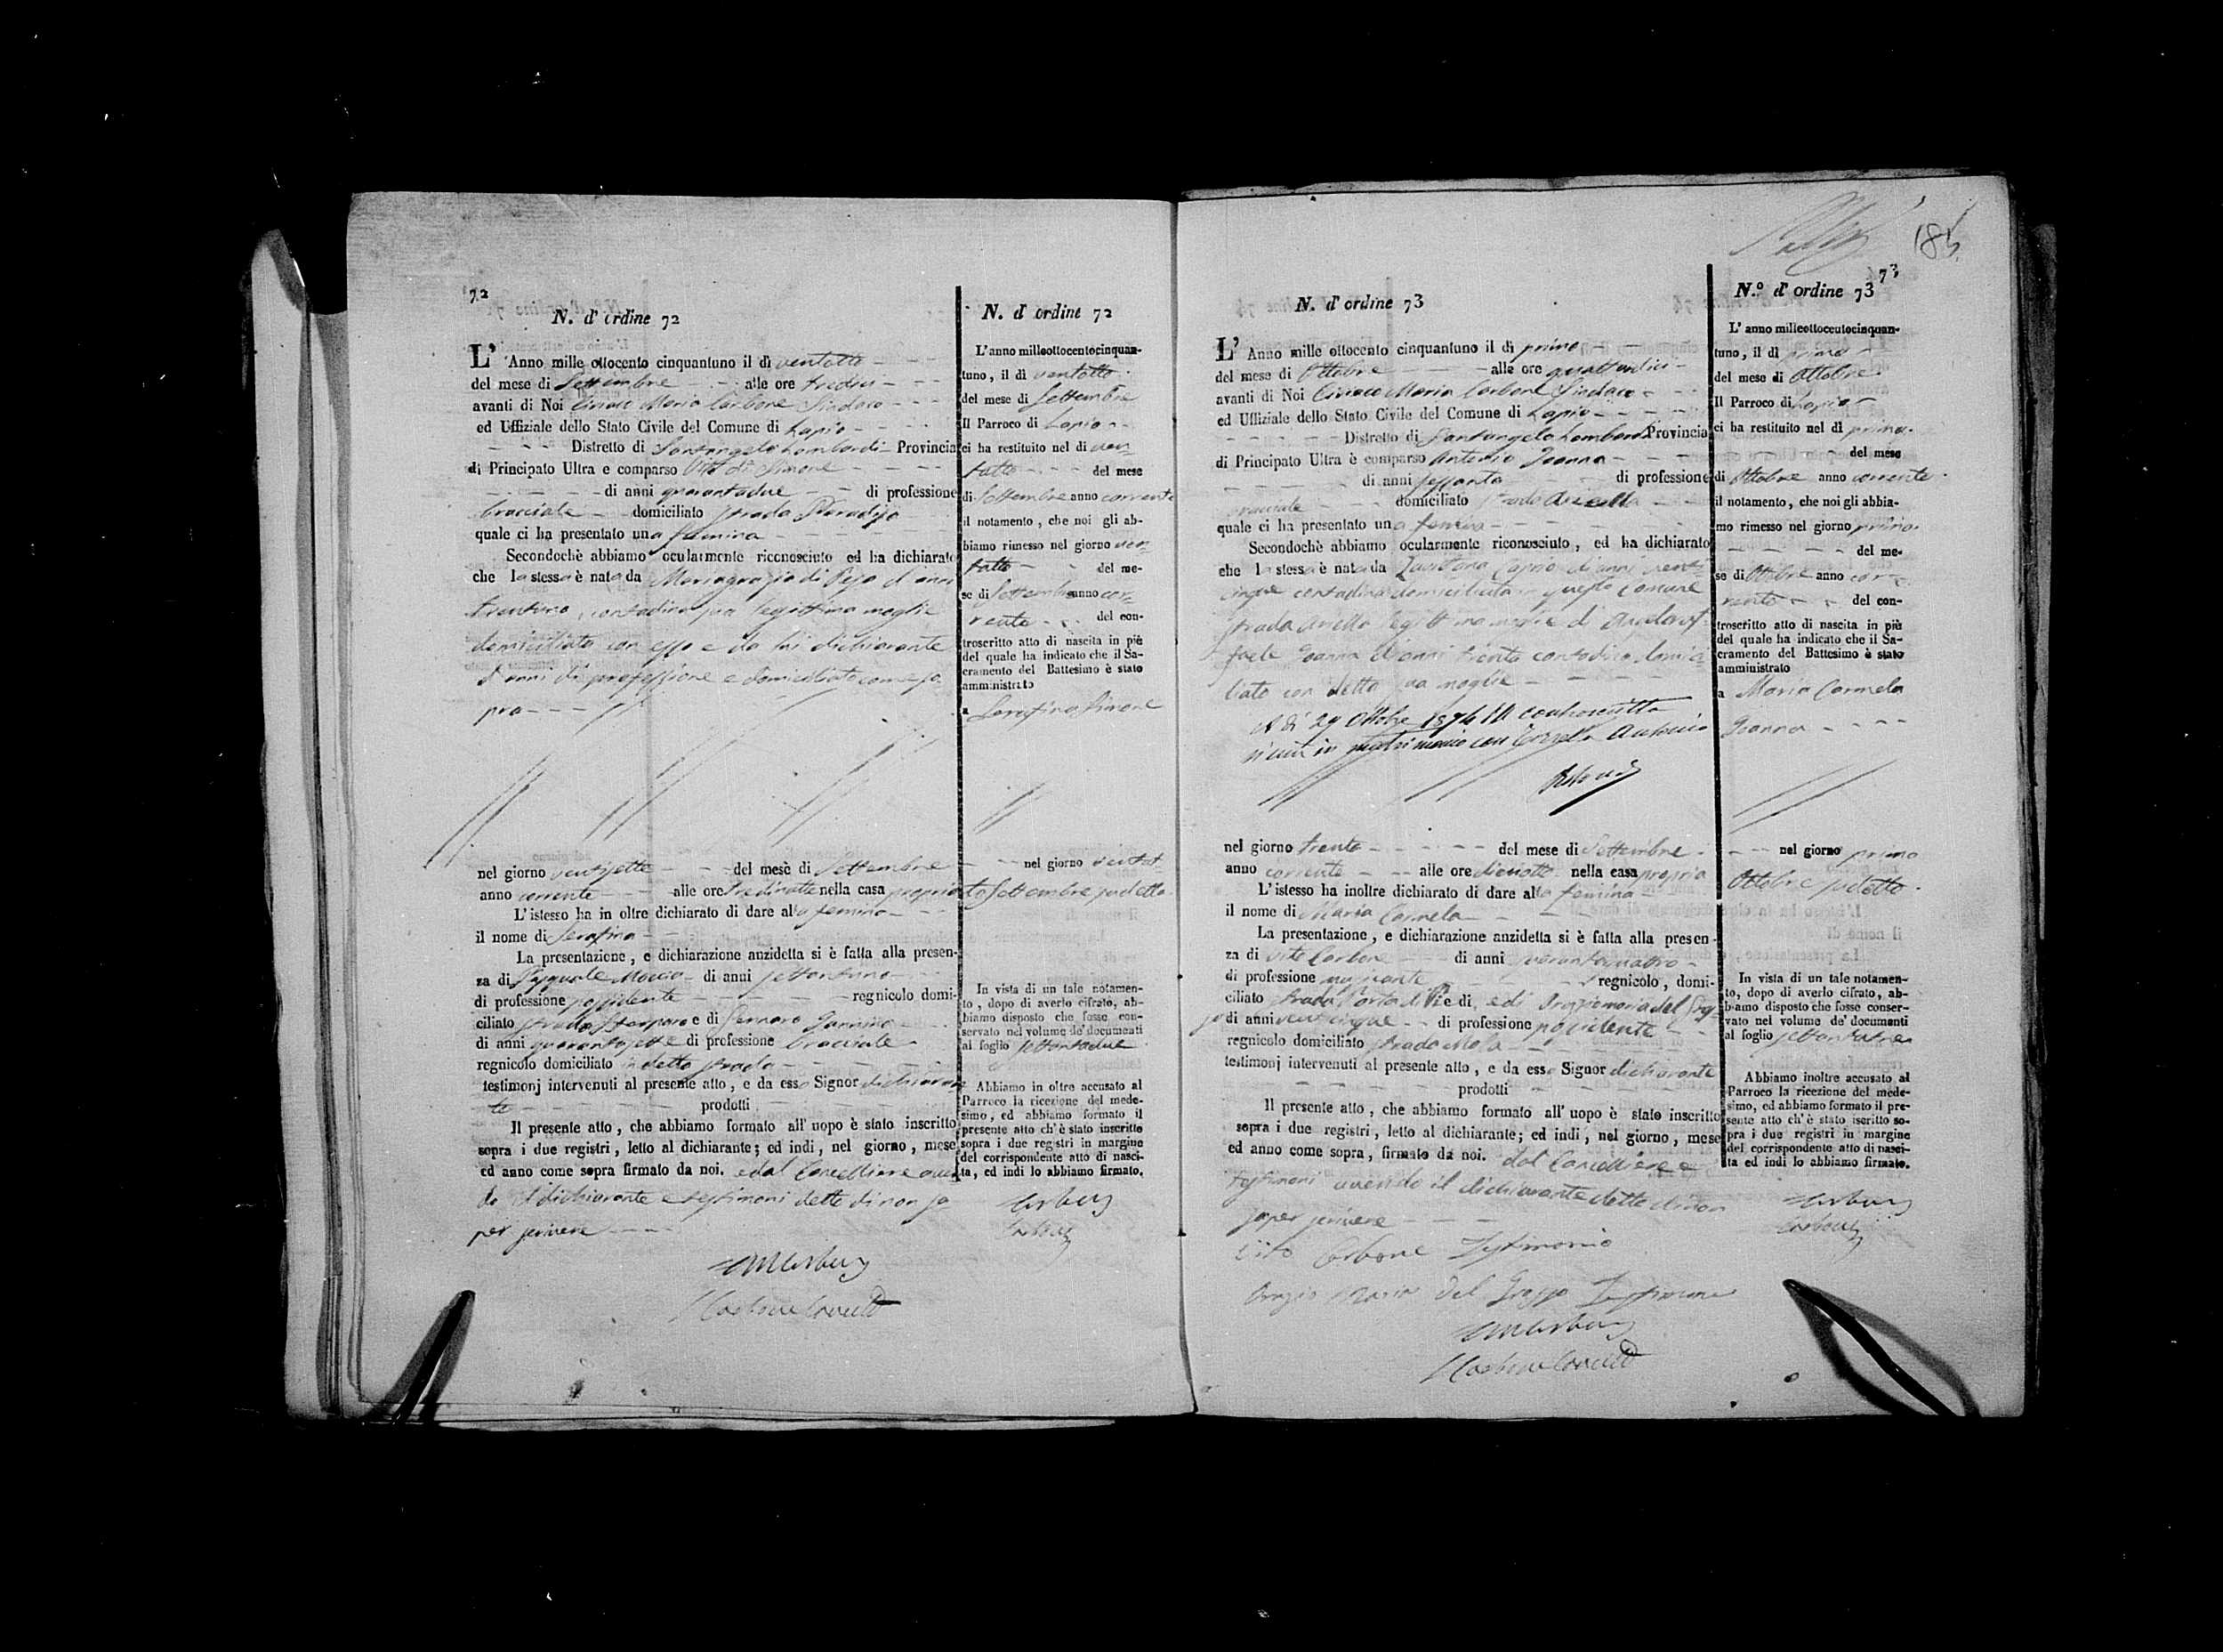 72
N. d' ordine 72
L' Anno mille ottocento cinquantuno il dì ventotto
del mese di Settembre alle ore tredici
avanti di Noi Ciriaco Maria Carbone Sindaco
ed Uffiziale dello Stato Civile del Comune di Lapio
Distretto di Santangelo Lombardi Provincia
di Principato Ultra e comparso Vito di Simone
di anni quarantadue di professione
bracciale domiciliato strada Paradiso
quale ci ha presentato una femina
Secondochè abbiamo ocularmente riconosciuto ed ha dichiarato
che la stessa è nata da Mariagrazia di d'anni
trentuno, contadina sua legittima moglie
domiciliata con esso e da lui dichiarante
d'anni di professione e domiciliato come so
pra
nel giorno ventisette del mese di Settembre
anno corrente alle ore nella casa propria
L'istesso ha in oltre dichiarato di dare alla femina
il nome di Serafina
La presentazione, e dichiarazione anzidetta si è fatta alla presen-
za di Pasquale di anni settantuno
di professione possidente regnicolo domi-
ciliato strada e di Gennaro
di anni quarantasette di professione bracciale
regnicolo domiciliato in detta strada
testimonj intervenuti al presente atto, e da esso Signor dichiaran
te prodotti
Il presente atto, che abbiamo formato all' uopo è stato inscritto
sopra i due registri, letto al dichiarante; ed indi, nel giorno, mese
ed anno come sopra firmato da noi. e dal Cancelliere aven
do il dichiarante e testimoni detto di non sa
per scrivere
N. d' ordine 72
L' anno milleottocentocinquan-
tuno, il dì ventotto
del mese di Settembre
Il Parroco di Lapio
ci ha restituito nel dì ven
totto del mese
di Settembre anno corrente
il notamento, che noi gli ab-
biamo rimesso nel giorno ven
totto del me-
se di Settembre anno cor-
rente del con-
troscritto atto di nascita in piè
del quale ha indicato che il Sa-
cramento del Battesimo è stato
amministrato
a Serafina Simone
nel giorno ventot
to Settembre sudetto
In vista di un tale notamen-
to, dopo di averlo cifrato, ab-
biamo disposto che fosse con-
servato nel volume de' documenti
al foglio settantadue
Abbiamo in oltre accusato al
Parroco la ricezione del mede-
simo, ed abbiamo formato il
presente atto ch'è stato inscritto
sopra i due registri in margine
del corrispondente atto di nasci-
ta, ed indi lo abbiamo firmato.
73
N. d' ordine 73
L' Anno mille ottocento cinquantuno il dì primo
del mese di Ottobre alle ore quattordici
avanti di Noi Ciriaco Maria Carbone Sindaco
ed Uffiziale dello Stato Civile del Comune di Lapio
Distretto di Santangelo Lombardi Provincia
di Principato Ultra è comparso Antonio Joanna
di anni sessanta di professione
bracciale domiciliato strada
quale ci ha presentato una femina
Secondochè abbiamo ocularmente riconosciuto, ed ha dichiarato
che la stessa è nata da di anni venti
cinque contadina domiciliata in questo Comune
strada legittima moglie di
Joanna di anni trenta contadino domici
liato con detta sua moglie
A dì 29 Ottobre la controscritta
unita in matrimonio con Antonio
nel giorno trenta del mese di Settembre
anno corrente alle ore diciotto nella casa propria
L'istesso ha inoltre dichiarato di dare alla femina
il nome di Maria Carmela
La presentazione, e dichiarazione anzidetta si è fatta alla presen-
za di Vito Carbone di anni quarantaquattro
di professione regnicolo, domi-
ciliato strada Porta di e di Orazio maria del Gros
so di anni venticinque di professione possidente
regnicolo domiciliato strada
testimonj intervenuti al presente atto, e da esso Signor dichiarante
prodotti
Il presente atto, che abbiamo formato all' uopo è stato inscritto
sopra i due registri, letto al dichiarante; ed indi, nel giorno, mese
ed anno come sopra, firmato da noi. dal Cancelliere e
testimoni avendo il dichiarante detto di non
saper scrivere
Vito Carbone Testimonio
Orazio Maria del Grosso Testimone
N.º d' ordine 73
L' anno milleottocentocinquan-
tuno, il dì primo
del mese di Ottobre
Il Parroco di Lapio
ci ha restituito nel dì primo
del mese
di Ottobre anno corrente
il notamento, che noi gli abbia-
mo rimesso nel giorno primo
del me-
se di Ottobre anno cor-
rente del con-
troscritto atto di nascita in piè
del quale ha indicato che il Sa-
cramento del Battesimo è stato
amministrato
a Maria Carmela
Joanna
nel giorno primo
Ottobre sudetto
In vista di un tale notamen-
to, dopo di averlo cifrato, ab-
biamo disposto che fosse conser-
vato nel volume de' documenti
al foglio settantatre
Abbiamo inoltre accusato al
Parroco la ricezione del mede-
simo, ed abbiamo formato il pre-
sente atto ch'è stato iscritto so-
pra i due registri in margine
del corrispondente atto di nasci-
ta ed indi lo abbiamo firmato.